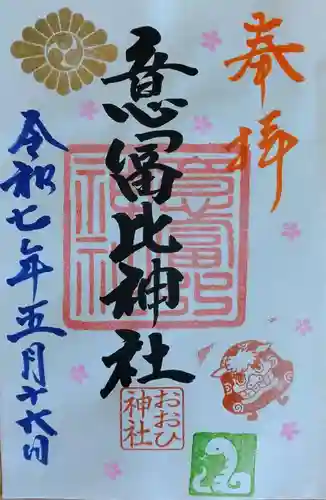 奉拝
意冨比神社
令和七年五月十六日
意富比
神社
おおひ
神社